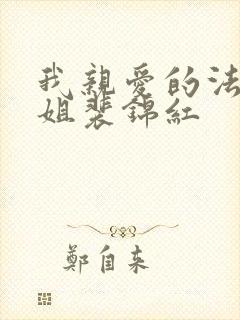 我親愛的法
姐裴錦紅
鄭自来